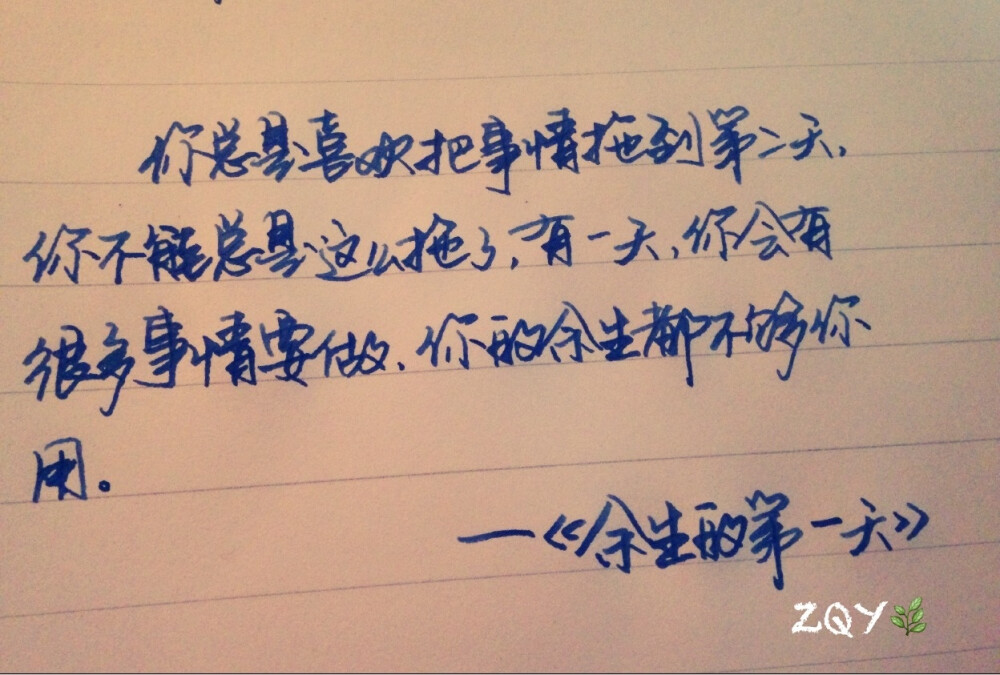 你总是喜欢把事情拖到第二天,
你不能总是这么拖了,有一天,你会有
很多事情要做,你的余生都不够你
用。
—《余生的第一天》
ZQY